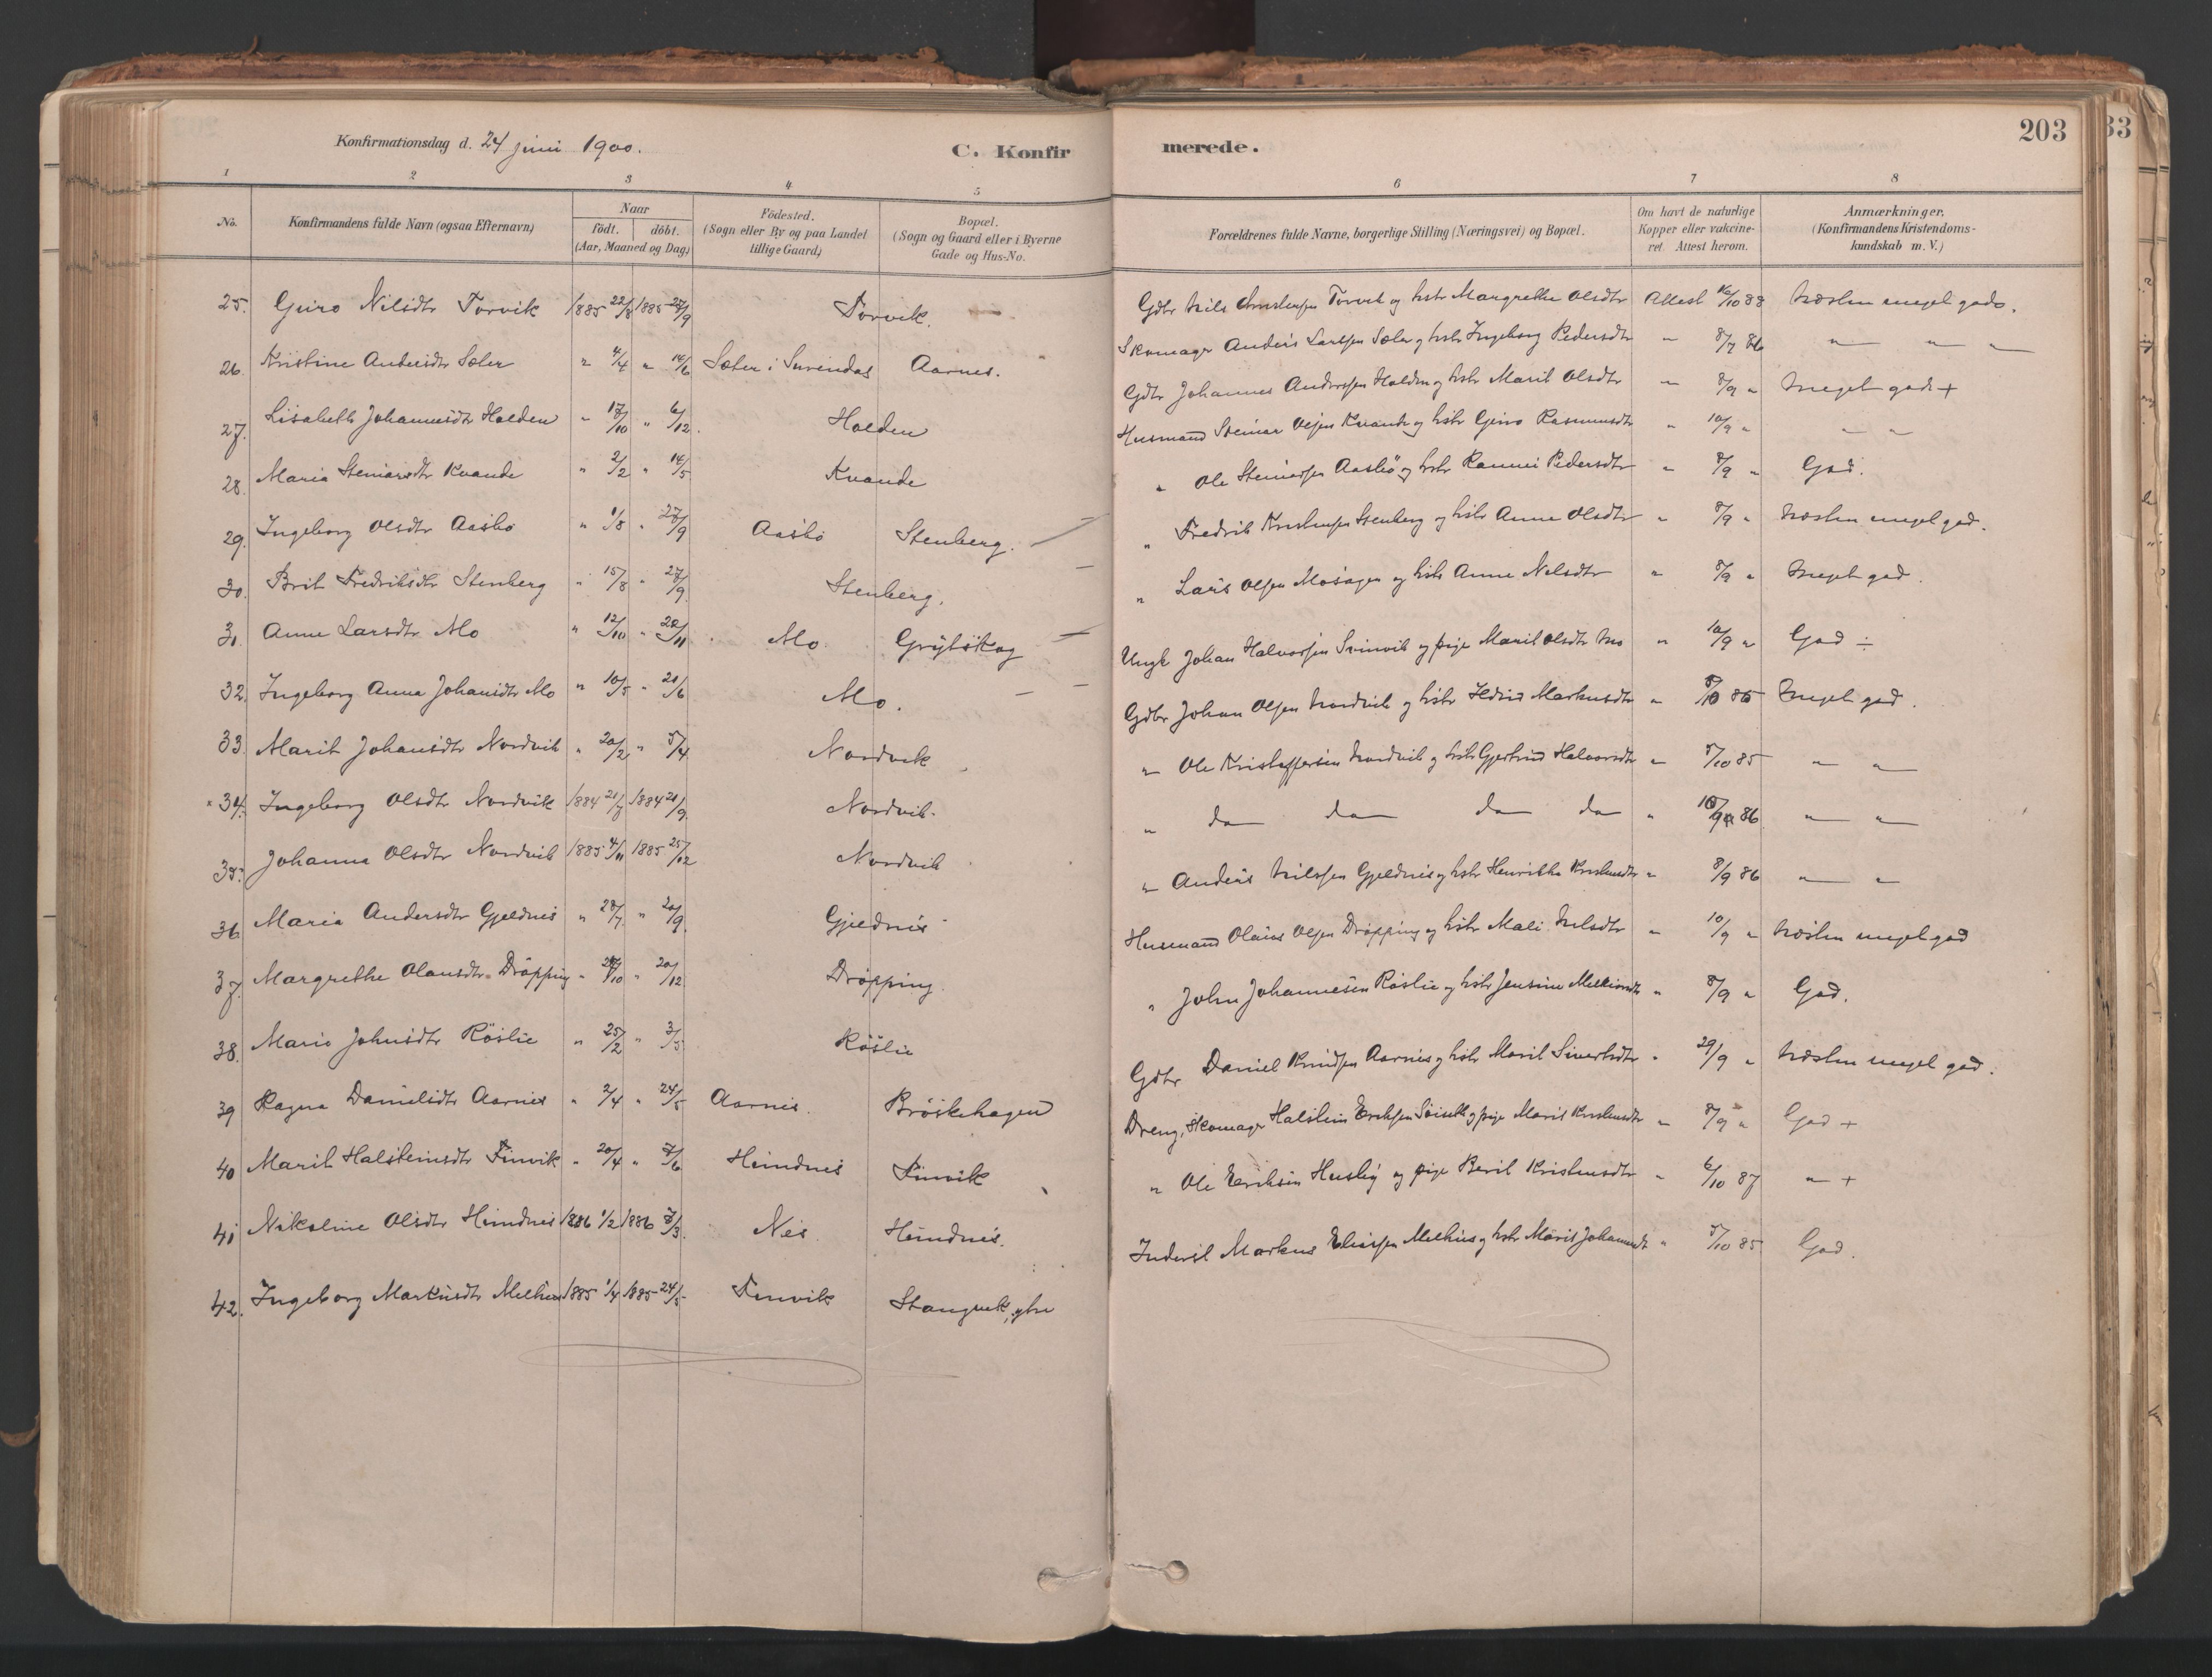 Konfirmationsdag d. 24 juni 1900.
C. Konfir
merede.
203
33
1 2 3 4 5 6 7 8
No.
Konfirmandens fulde Navn (ogsaa Efternavn)
Naar
födt. döbt.
(Aar, Maaned og Dag)
Födested.
(Sogn eller By og paa Landet
tillige Gaard)
Bopæl.
(Sogn og Gaard eller i Byerne
Gade og Hus-No.
Forældrenes fulde Navne, borgerlige Stilling (Næringsvei) og Bopæl.
Om havt de naturlige
Kopper eller vakcine-
ret. Attest herom.
Anmærkninger.
(Konfirmandens Kristendoms-
kundskab m. V.)
25. Guro Nilsdtr Torvik 1885 22/8 1885 27/9 Torvik. Gdbr Nils Torvik og hstr Margrethe Olsdtr Attest 16/10 88 Næsten meget godt.
26. Kristine Andersdtr Sæter " 4/4 " 14/6 Sæter i Surendal Aarnes. Skomager Anders Larssen Sæter og hstr Ingeborg Pedersdtr " 8/7 86 " " "
27. Lisabeth Johannesdtr Holden " 17/10 " 6/12. Holden Gdbr Johannes Anderssen Holden og hstr Marit Olsdtr " 8/9 " Meget godt +
28. Maria Steinarsdtr Kvande " 2/2 " 14/5 Kvande Husmand Steinar Olsen Kvande og hstr Guro Rasmusdtr " 10/9 " " "
29. Ingeborg Olsdtr Aasbö " 1/8 " 27/9 Aasbö Stenberg. " Ole Steinarsen Aasbö og hstr Pedersdtr " 8/9 " God.
30. Brit Fredriksdtr Stenberg " 15/8 " 27/9 Stenberg. " Fredrik Kristensen Stenberg og hstr Anne Olsdtr " 8/9 " Næsten meget god.
31. Anne Larsdtr Mo " 12/10 " 22/11 Mo Grytskog " Lars Olsen og hstr Anne Nilsdtr " 8/9 " Meget god.
32. Ingeborg Anna Johansdtr Mo " 10/5 " 21/6 Mo. Ungk Johan Halvorsen Svinvik og pige Marit Olsdtr Mo " 10/9 " God ÷
33. Marit Johansdtr Nordvik " 20/2 " 5/4 Nordvik Gdbr Johan Olsen Nordvik og hstr Markusdtr " 8/10 85 Meget god.
34. Ingeborg Olsdtr Nordvik 1884 21/7 1884 21/9. Nordvik. " Ole Kristoffersen Nordvik og hstr Gjertrud Halvorsdtr " 5/10 85 " "
35. Johanna Olsdtr Nordvik 1885 4/11 1885 25/12 Nordvik " do do do do " 10/9 86 " "
36. Maria Andersdtr Gjeldnes " 28/7. " 20/9. Gjeldnes " Anders Nilssen Gjeldnes og hstr Henrikke " 8/9 86 " "
37. Margrethe Olausdtr Dröpping " /10 " 20/12 Dröpping. Husmand Olaus Olsen Dröpping og hstr Mali Nilsdtr " 10/9 " Næsten meget god
38. Marie Johnsdtr Röslie " 25/2 " 3/5 Röslie " John Johannesen Röslie og hstr Jensine " 8/9 " God.
39 Ragna Danielsdtr Aarnes " 2/4 " 24/5 Aarnes. Bröskehagen Gdbr Daniel Knudsen Aarnes og hstr Marit Sivertsdtr " 29/9 " Næsten meget god.
40 Marit Halsteinsdtr Finvik " 20/4 " 7/6 Heimdnes Finvik Dreng, Skomager Halstein Eriksen og pige Marit " 8/9 " God +
41 Nikoline Olsdtr Heimdnes 1886 1/2 1886 7/3. Nes Heimdnes. " Ole Eriksen Husby og pige Beret Kristensdtr " 6/10 87 " +
42. Ingeborg Markusdtr Melhus 1885 1/4 1885 24/5 Finvik Stangvik, ytre Inderst Markus Eliassen Melhus og hstr Marit " 5/10 85 God.